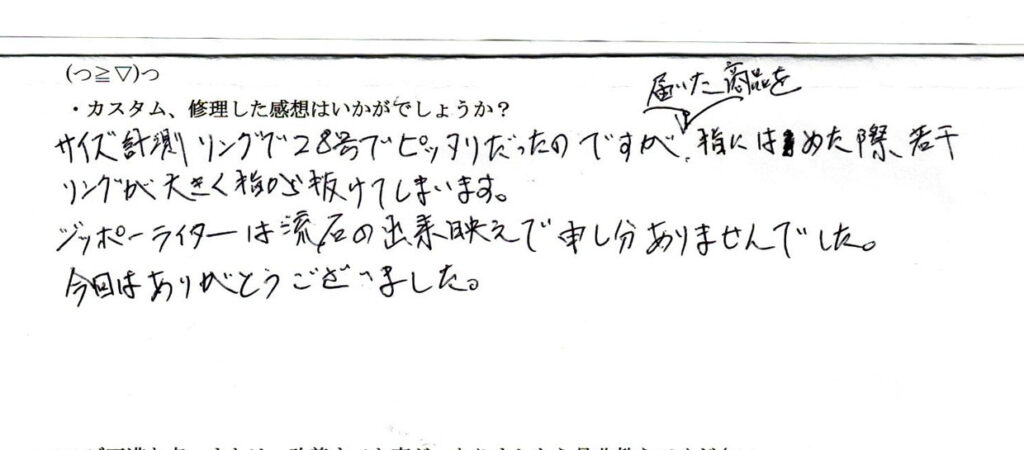 (つ≧▽)つ
・カスタム、修理した感想はいかがでしょうか？
届いた商品を
サイズ計測リングで28号でピッタリだったのですが、指にはめた際、若干
リングが大きく指から抜けてしまいます。
ジッポーライターは流石の出来映えで申し分ありませんでした。
今回はありがとうございました。